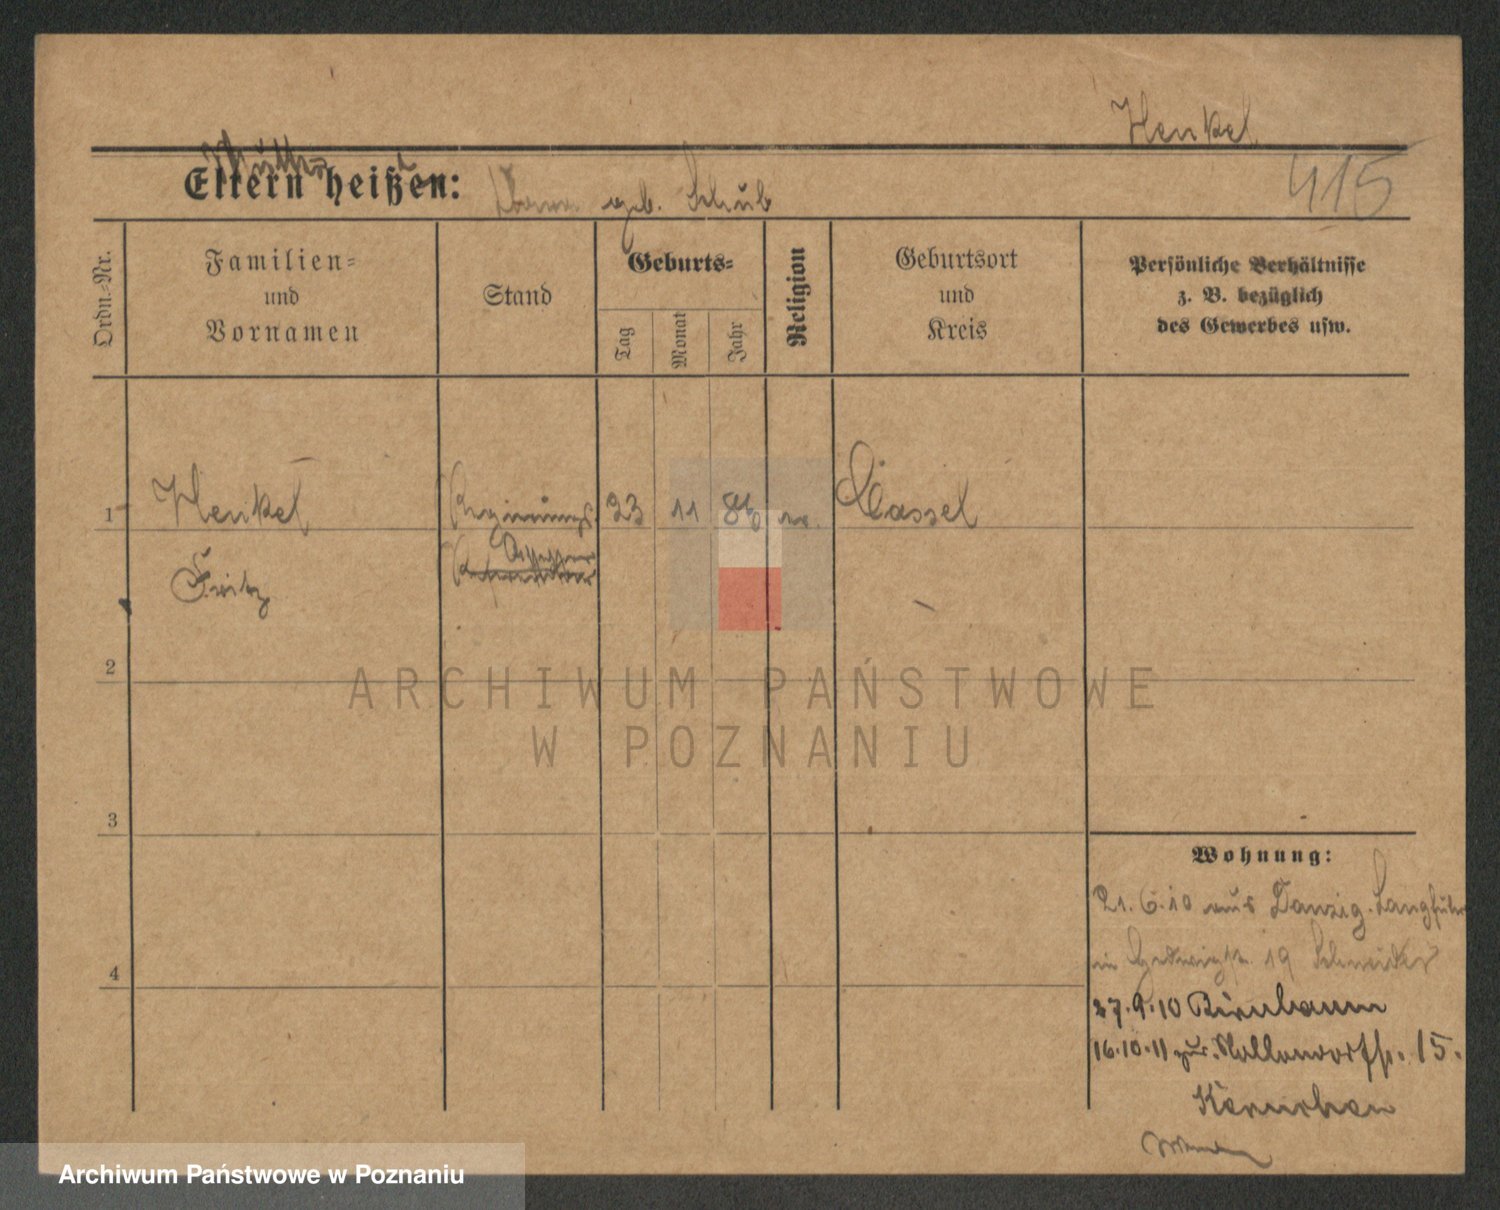 Henkel
415
Mutter
Eltern heißen: geb. Schub
Ordn.-Nr.
Familien-
und
Vornamen
Stand
Geburts-
Tag
Monat
Jahr
Religion
Geburtsort
und
Kreis
Persönliche Verhältnisse
z. B. bezüglich
des Gewerbes usw.
1
Henkel
Regierungs
23
11
Cassel
Assessor
Referendar
Fritz
2
3
4
Wohnung:
21.6.10 aus Danzig-Langfuhr
in Hedwigstr. 19 Schneider
27.9.10 Birnbaum
16.10.11 zur. Hallendorfstr. 15.
ARCHIWUM PAŃSTWOWE
W POZNANIU
Archiwum Państwowe w Poznaniu